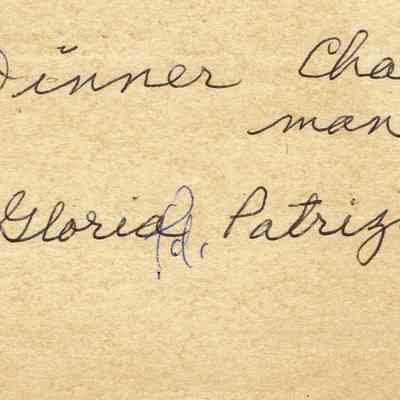 Dinner Cha
man
Gloria Patriz
pd.